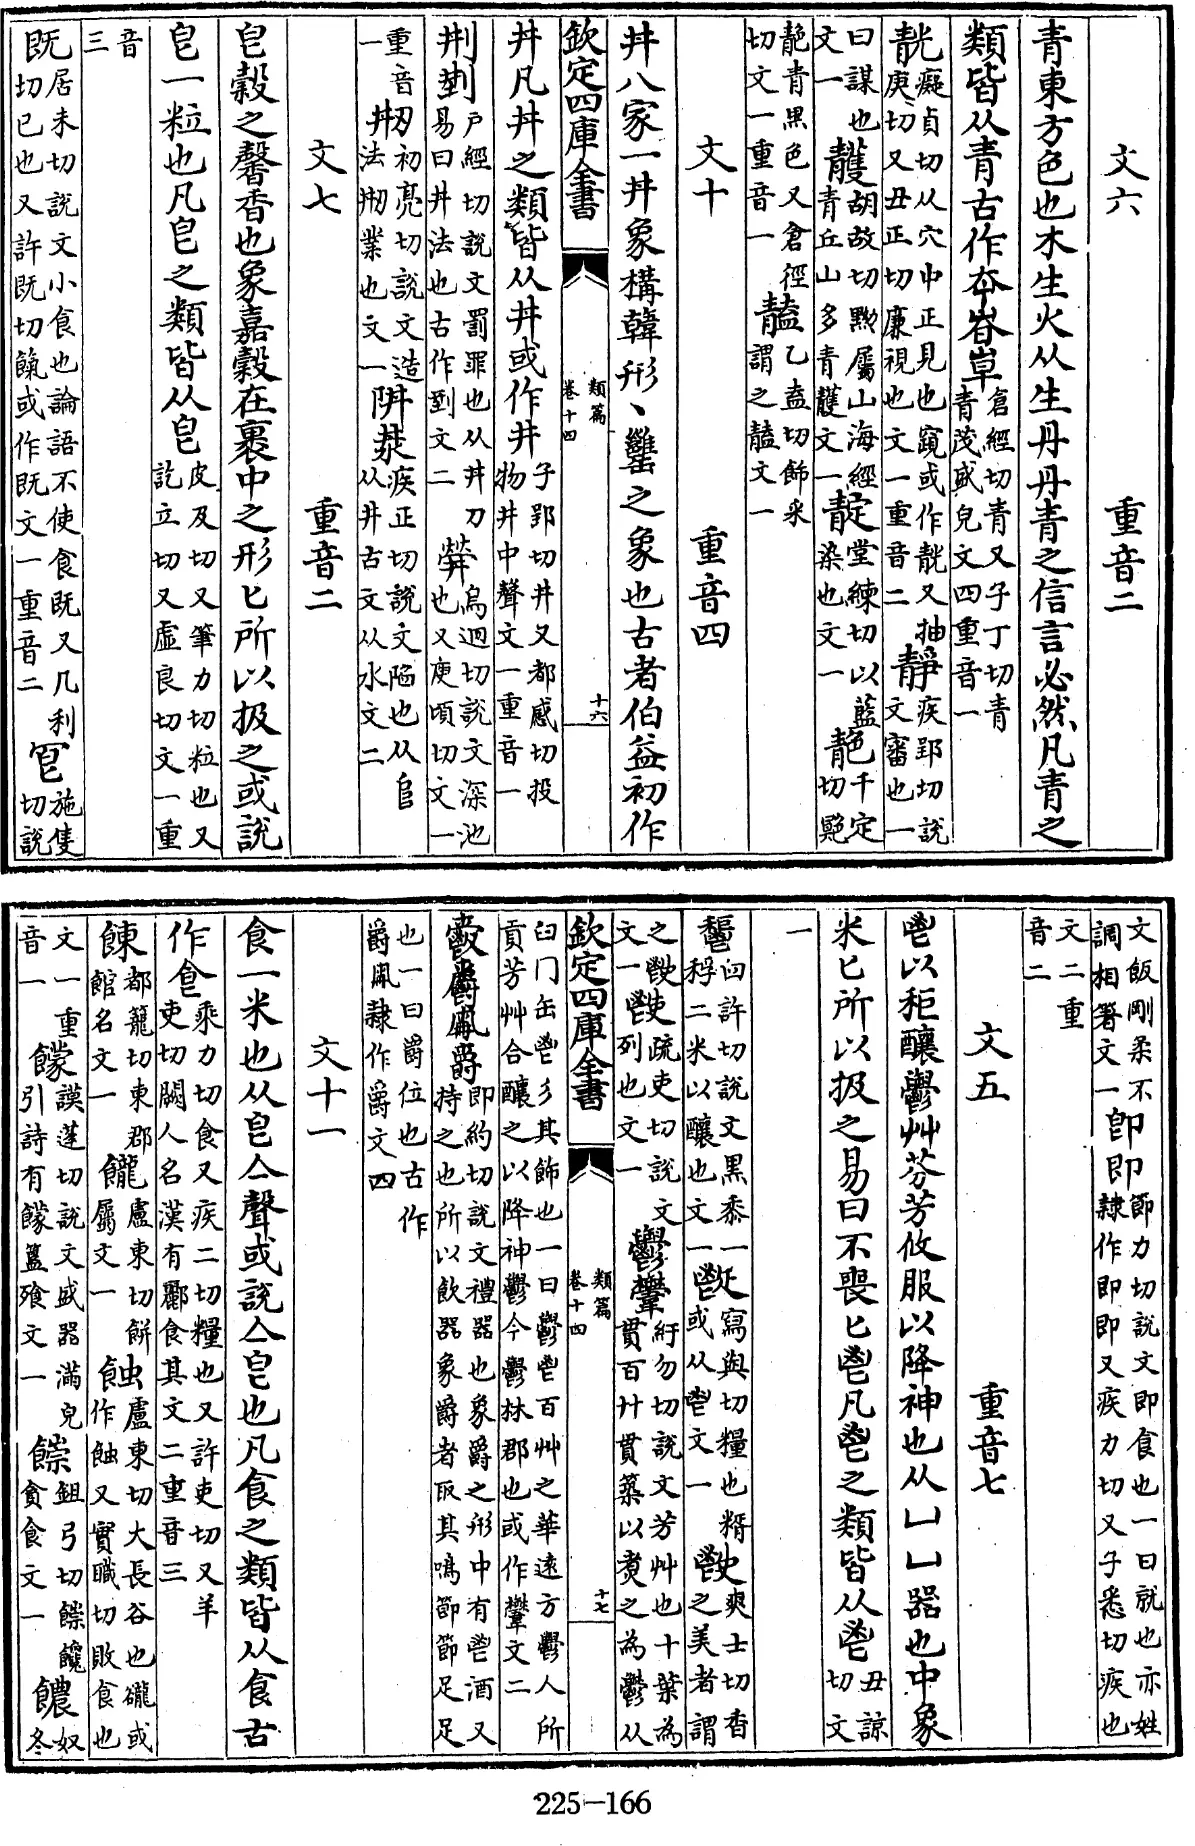 文六　重音二
青東方色也木生火从生丹丹青之信言必然凡青之
類皆从青古作𡴑𡴥𡴀倉經切青又子丁切青青茂盛皃文四重音一
䚎癡貞切从穴中正見也窺或作䚎又抽庚切又丑正切廉視也文一重音二靜疾郢切説文審也一
曰謀也文一䨼胡故切黝屬山海經青丘山多青䨼文一靛堂練切以藍染也文一靘千定切艴
靘青黑色又倉徑切文一重音一䨠乙盍切飾采謂之䨠文一
文十　重音四
丼八家一丼象構韓形丶䍇之象也古者伯益初作
欽定四庫全書　類篇　卷十四　十六
丼凡丼之類皆从丼或作井子郢切井又都感切投物井中聲文一重音一
㓝㓝戶經切説文罰罪也从丼刀易曰井法也古作㓝文二䁝烏迥切説文深池也又庾頃切文一
重音一㓝初亮切説文造法刱業也文一阱𣳅疾正切説文陷也从𨸏从井古文从水文二
文七　重音二
皀穀之馨香也象嘉穀在裹中之形匕所以扱之或説
皀一粒也凡皀之類皆从皀皮及切又筆力切粒也又訖立切又虛良切文一重
音三
既居未切説文小食也論語不使食既又几利切已也又許既切餼或作既文一重音二冟施隻切説
文飯剛柔不調相箸文一卽即節力切説文即食也一曰就也亦姓隷作即即又疾力切又子悉切疾也
文二重音二
文五　重音七
鬯以秬釀鬱艸芬芳攸服以降神也从凵凵器也中象
米匕所以扱之易曰不喪匕鬯凡鬯之類皆从鬯丑諒切文
一
𩰤臼許切説文黑黍一稃二米以釀也文一䰞寫與切糧也糈或从鬯文一𩰪爽士切香之美者謂
之𩰪𩰪疏吏切説文文一𩰡列也文一鬱𩰪紆勿切説文芳艸也十葉為貫百廾貫築以煑之為鬱从
欽定四庫全書　類篇　卷十四　十七
臼冂缶鬯彡其飾也一曰鬱鬯百艸之華遠方鬱人所貢芳艸合釀之以降神鬱今鬱林郡也或作𩰪文二
爵即約切説文禮器也象爵之形中有鬯酒又持之也所以飲器象爵者取其鳴節節足足
也一曰爵位也古作爵凮隷作爵文四
文十一
食一米也从皀亼聲或説亼皀也凡食之類皆从食古
作𠊊乘力切食又疾二切糧也又許吏切又羊吏切闕人名漢有酈食其文二重音三
餗都籠切東郡館名文一𩟭盧東切餅屬文一蝕盧東切大長谷也䃧或作蝕又實職切敗食也
文一重音一饛謨蓬切説文盛器滿皃引詩有饛簋飱文一䭥鉏弓切䭥饞貪食文一䢉奴冬
225-166